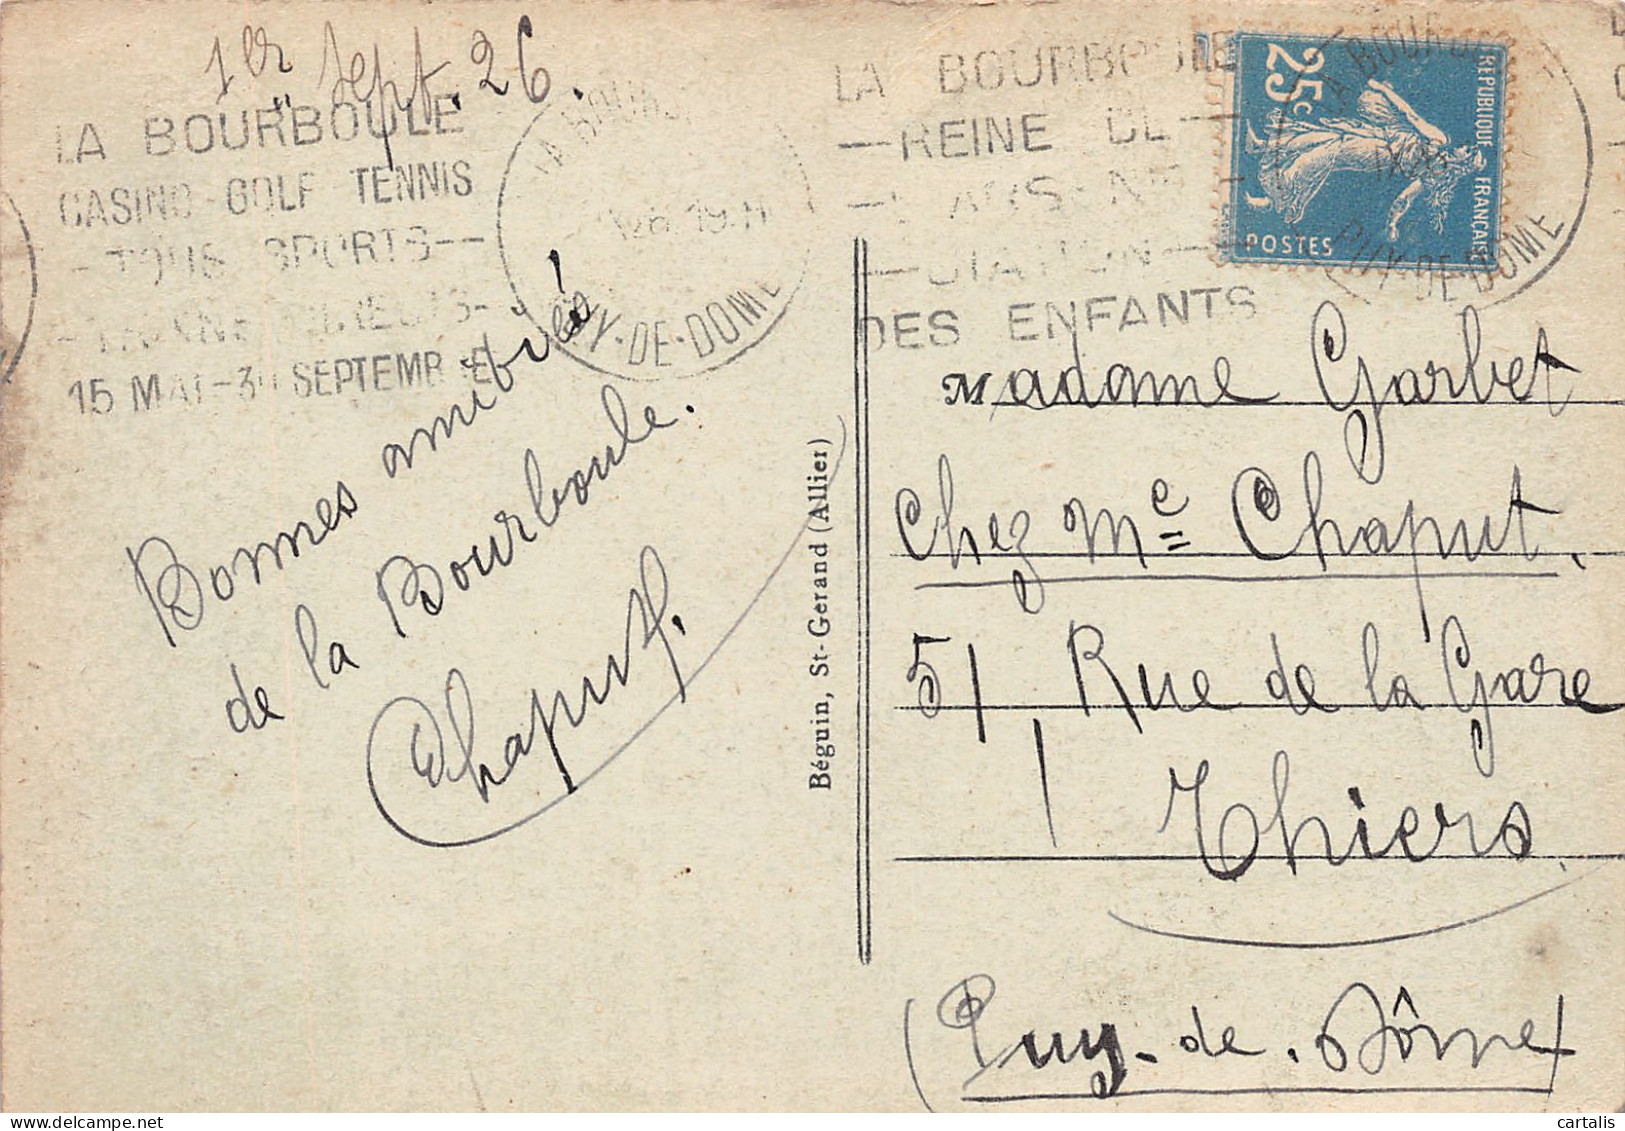 1er Sept. 26.
LA BOURBOULE
CASINO - GOLF TENNIS
- TOUS SPORTS - -
15 MAI - 30 SEPTEMBRE
LA BOURB
PUY-DE-DOME
Bonnes amitiés
de la Bourboule.
Chaput.
Béguin, St-Gerand (Allier)
LA BOURBOULE
— REINE DE —
— STATION —
DES ENFANTS
25c
REPUBLIQUE FRANÇAISE
POSTES
LA BOURB
PUY-DE-DOME
Madame Garbet
chez Me Chaput.
51 Rue de la Gare
Thiers.
(Puy-de-Dôme)
cartalis